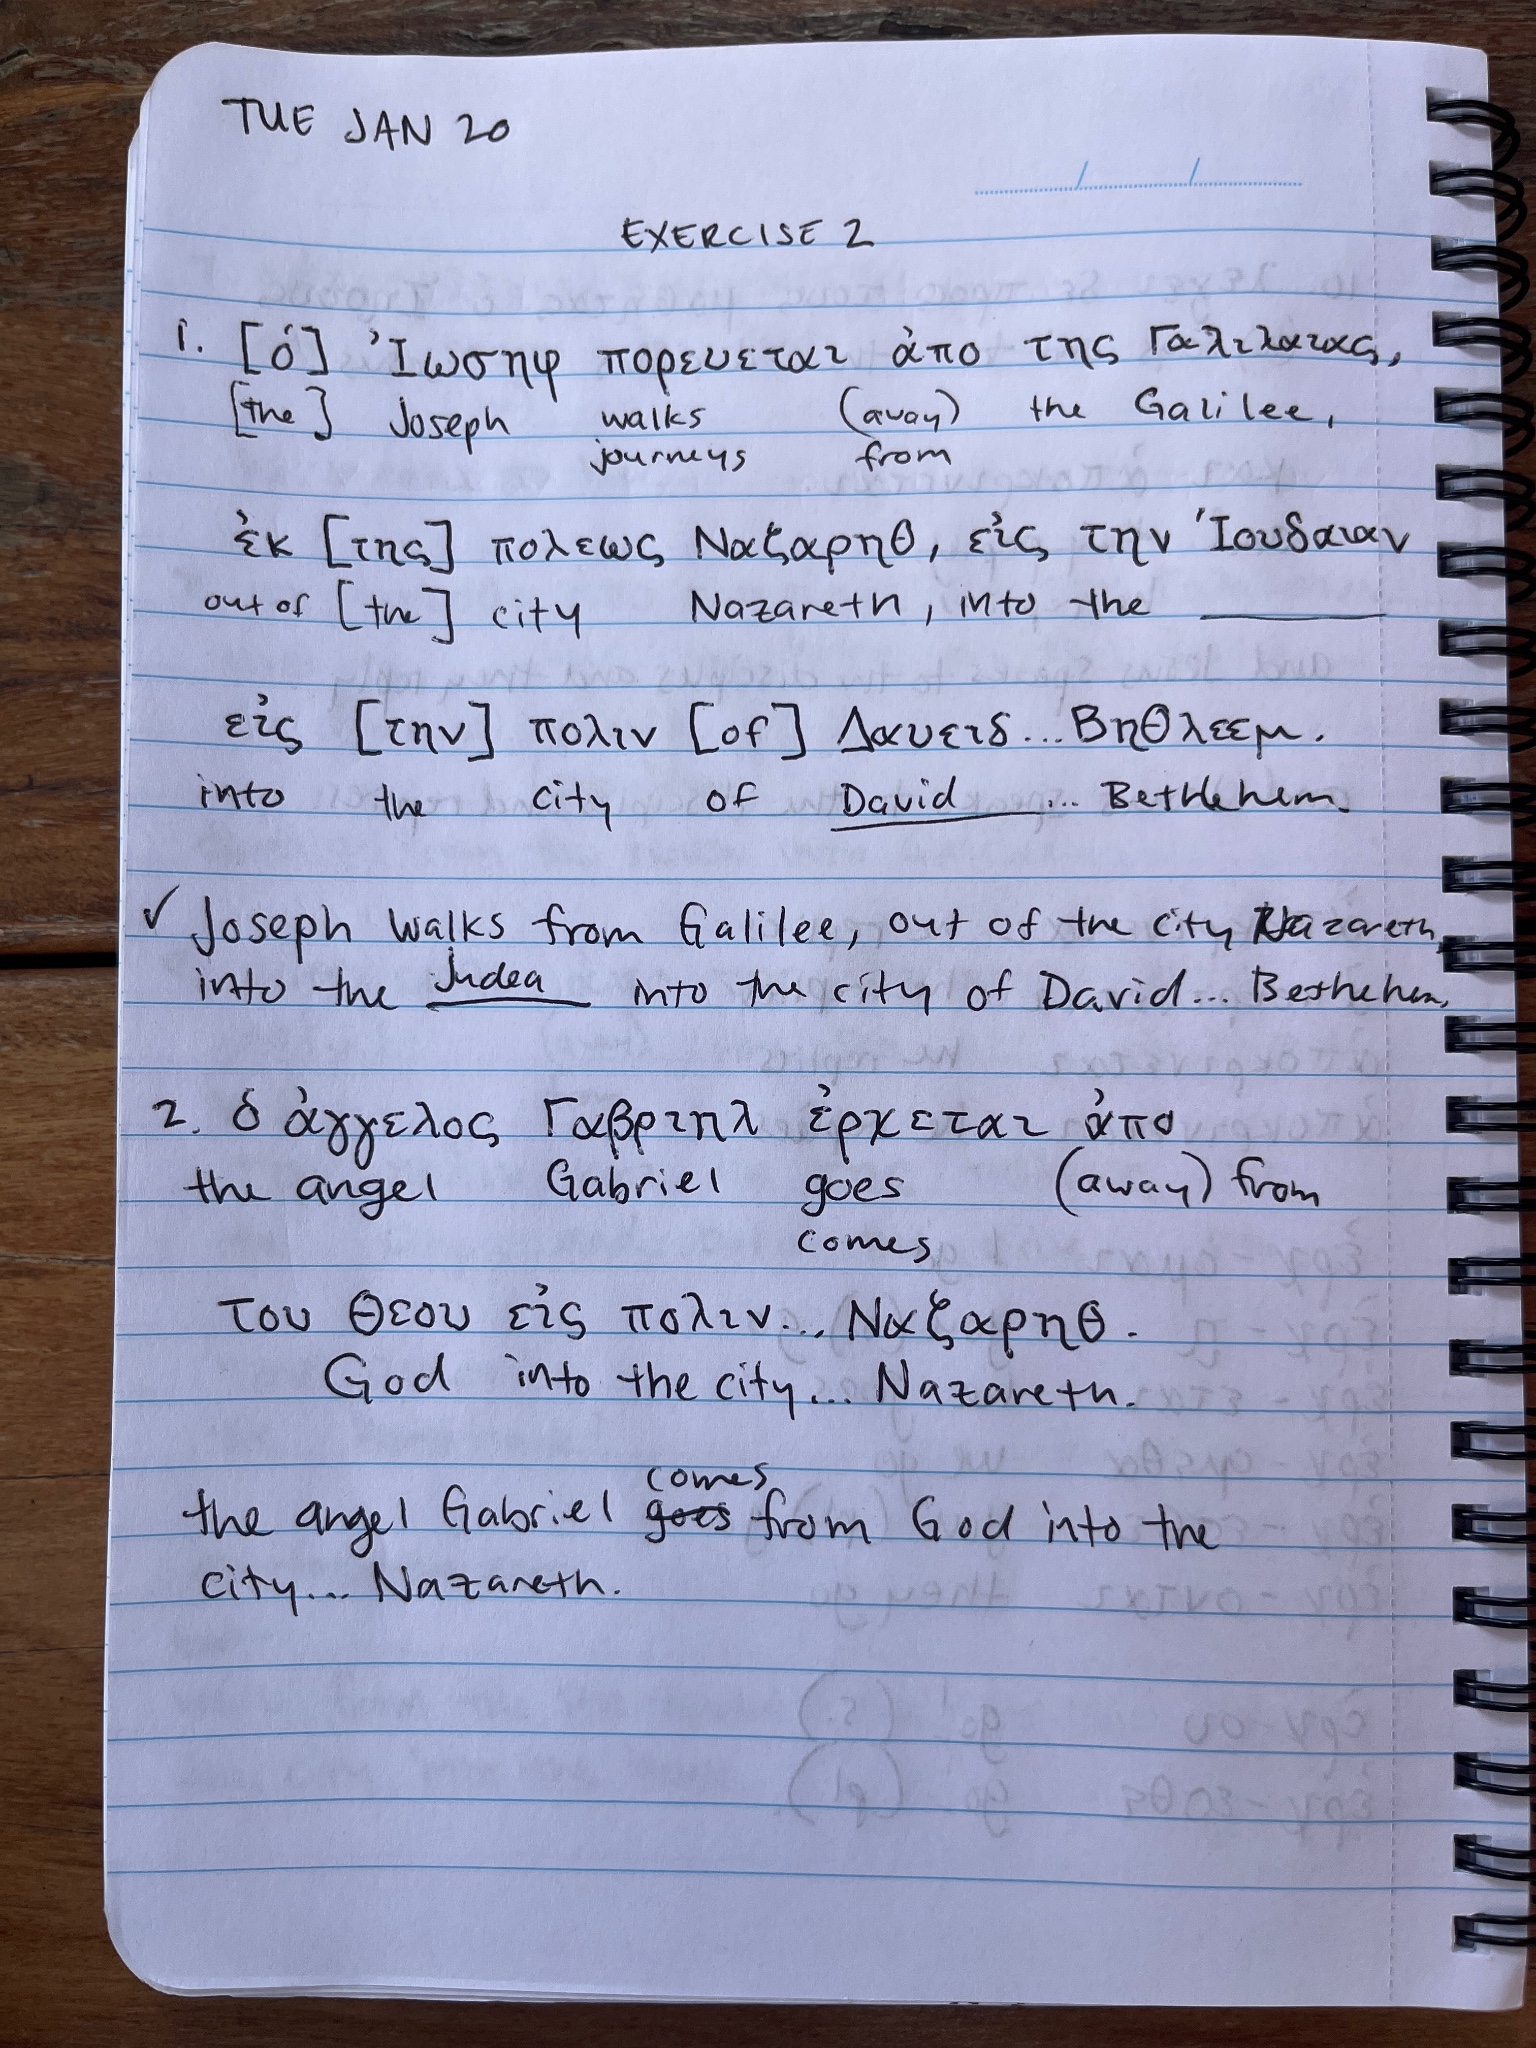 TUE JAN 20
EXERCISE 2
1. [ὁ] Ἰωσηφ πορευεται ἀπο της Γαλιλαιας,
[the] Joseph walks (away) the Galilee,
journeys from
ἐκ [της] πολεως Ναζαρηθ, εἰς την Ἰουδαιαν
out of [the] city Nazareth, into the ______
εἰς [την] πολιν [of] Δαυειδ... Βηθλεεμ.
into the city of David ... Bethlehem.
✓ Joseph walks from Galilee, out of the city Nazareth,
into the Judea into the city of David... Bethehem.
2. ὁ ἀγγελος Γαβριηλ ἐρχεται ἀπο
the angel Gabriel goes (away) from
comes
του Θεου εἰς πολιν... Ναζαρηθ.
God into the city... Nazareth.
comes
the angel Gabriel goes from God into the
city... Nazareth.